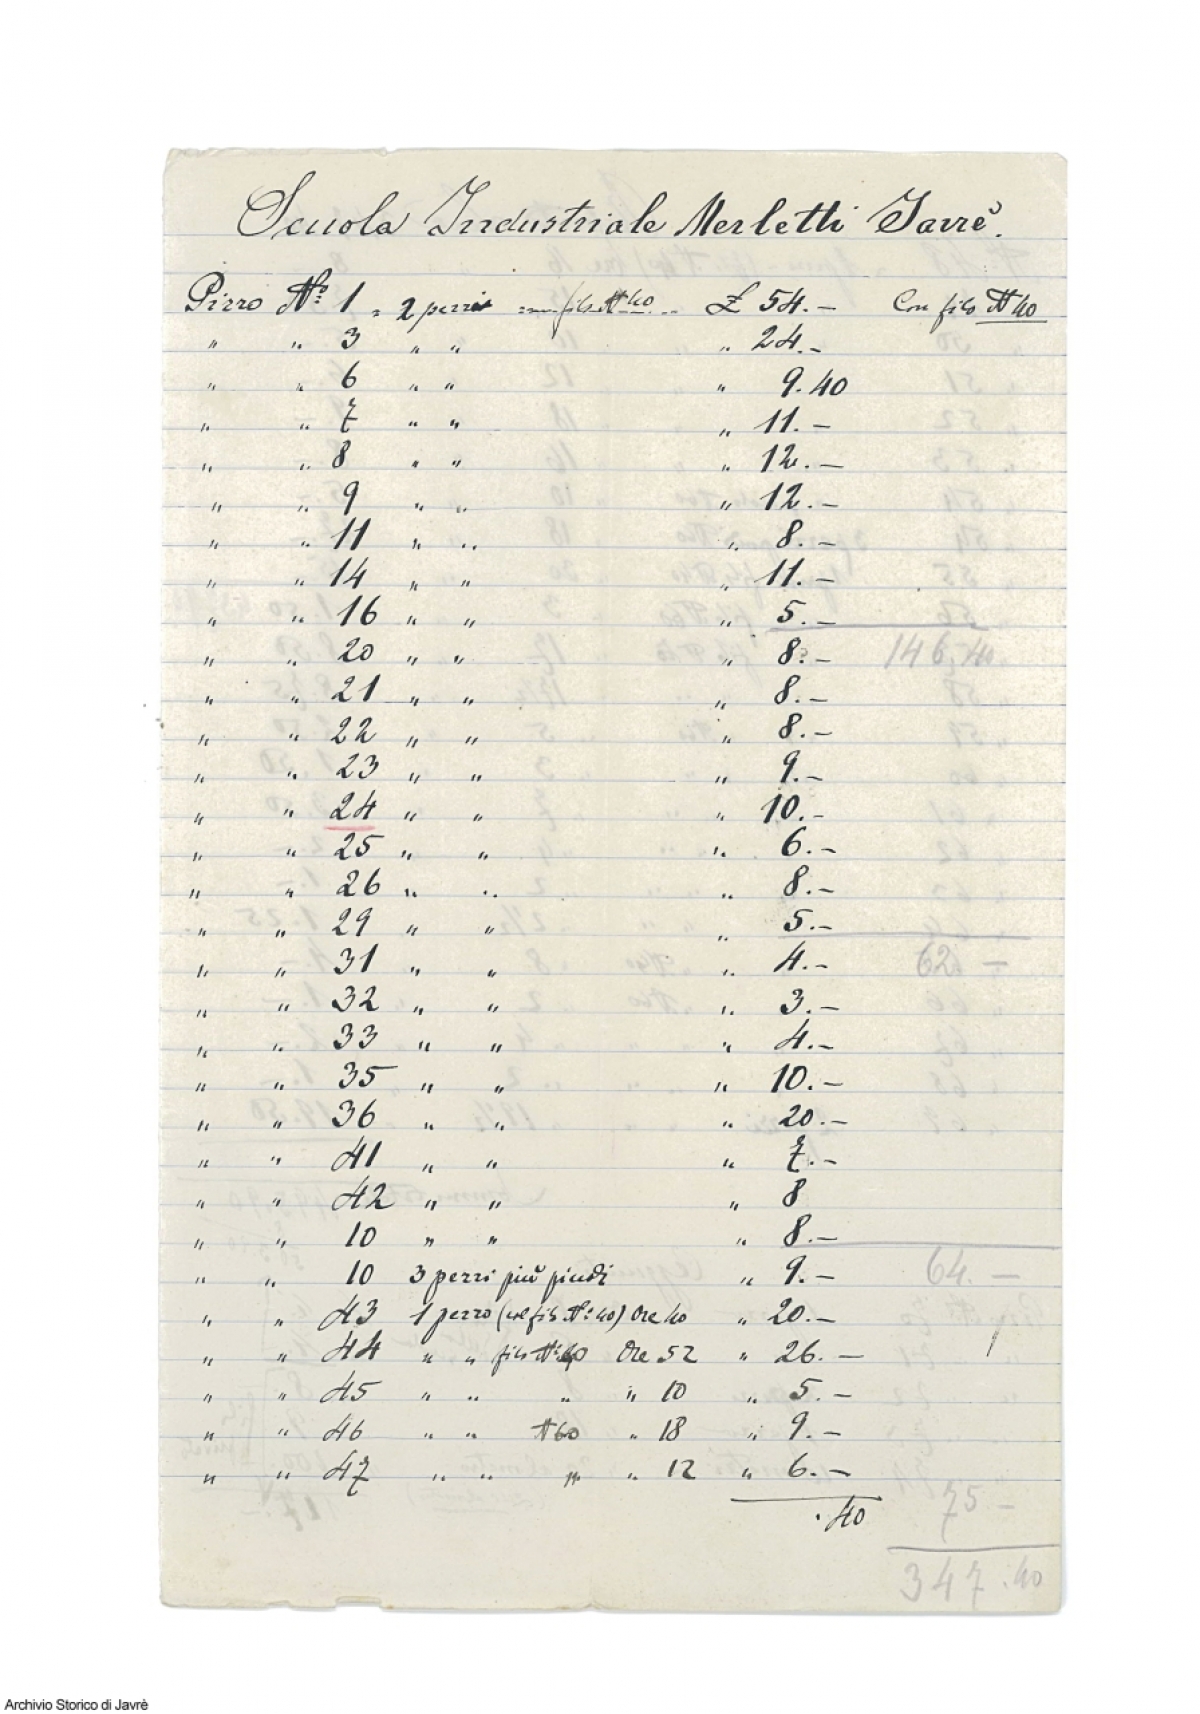 Scuola Industriale Merletti Javrè.
Pizzo Nº 1 = 2 pezzi = filo № 40 £ 54.— Con filo № 40
" " 3 " " " 24.—
" " 6 " " " 9.40
" " 7 " " " 11.—
" " 8 " " " 12.—
" " 9 " " " 12.—
" " 11 " " " 8.—
" " 14 " " " 11.—
" " 16 " " " 5.—
" " 20 " " " 8.— 146.40
" " 21 " " " 8.—
" " 22 " " " 8.—
" " 23 " " " 9.—
" " 24 " " " 10.—
" " 25 " " " 6.—
" " 26 " " " 8.—
" " 29 " " " 5.—
" " 31 " " " 4.— 62.—
" " 32 " " " 3.—
" " 33 " " " 4.—
" " 35 " " " 10.—
" " 36 " " " 20.—
" " 41 " " " 7.—
" " 42 " " " 8
" " 10 " " " 8.—
" " 10 3 pezzi più " 9.— 64.—
" " 43 1 pezzo (col filo Nº 40) Ore 40 " 20.—
" " 44 " " filo Nº 40 Ore 52 " 26.—
" " 45 " " " " 10 " 5.—
" " 46 " " № 60 " 18 " 9.—
" " 47 " " " " 12 " 6.—
75—
.40
347.40
Archivio Storico di Javrè